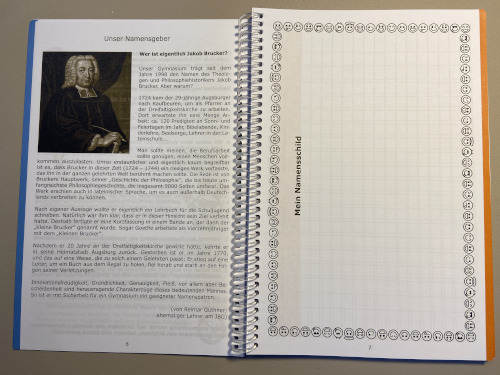 Unser Namensgeber
Wer ist eigentlich Jakob Brucker?
Unser Gymnasium trägt seit dem
Jahre 1998 den Namen des Theolo-
gen und Philosophiehistorikers Jakob
Brucker. Aber warum?
1724 kam der 29-jährige Augsburger
nach Kaufbeuren, um als Pfarrer an
der Dreifaltigkeitskirche zu arbeiten.
Dort erwartete ihn eine Menge Ar-
beit: ca. 120 Predigten an Sonn- und
Feiertagen im Jahr, Bibelabende, Kin-
derlehre, Seelsorge, Lehrer in der La-
teinschule...
Man sollte meinen, die Berufsarbeit
sollte genügen, einen Menschen voll-
kommen auszulasten. Umso erstaunlicher und eigentlich kaum begreifbar
ist es, dass Brucker in dieser Zeit (1724 – 1744) ein riesiges Werk verfasste,
das ihn in der ganzen gelehrten Welt berühmt machen sollte. Die Rede ist von
Bruckers Hauptwerk, seiner „Geschichte der Philosophie", die bis heute um-
fangreichste Philosophiegeschichte, die insgesamt 9000 Seiten umfasst. Das
Werk erschien auch in lateinischer Sprache, um es auch außerhalb Deutsch-
lands verbreiten zu können.
Nach eigener Aussage wollte er eigentlich ein Lehrbuch für die Schuljugend
schreiben. Natürlich war ihm klar, dass er in dieser Hinsicht sein Ziel verfehlt
hatte. Deshalb fertigte er eine Kurzfassung in einem Bande an, der dann der
„Kleine Brucker" genannt wurde. Sogar Goethe arbeitete als Vierzehnjähriger
mit dem „Kleinen Brucker".
Nachdem er 20 Jahre an der Dreifaltigkeitskirche gewirkt hatte, kehrte er
in seine Heimatstadt Augsburg zurück. Gestorben ist er im Jahre 1770,
und das auf eine Weise, die zu solch einem Gelehrten passt: Er stieg auf eine
Leiter, um ein Buch aus dem Regal zu holen, fiel herab und starb an den Fol-
gen seiner Verletzungen.
Innovationsfreudigkeit, Gründlichkeit, Genauigkeit, Fleiß, vor allem aber Be-
scheidenheit sind herausragende Charakterzüge dieses bedeutenden Mannes.
So ist er mit Sicherheit für ein Gymnasium ein geeigneter Namenspatron.
(von Reimar Glühner
ehemaliger Lehrer am JBG)
6
Mein Namensschild
7